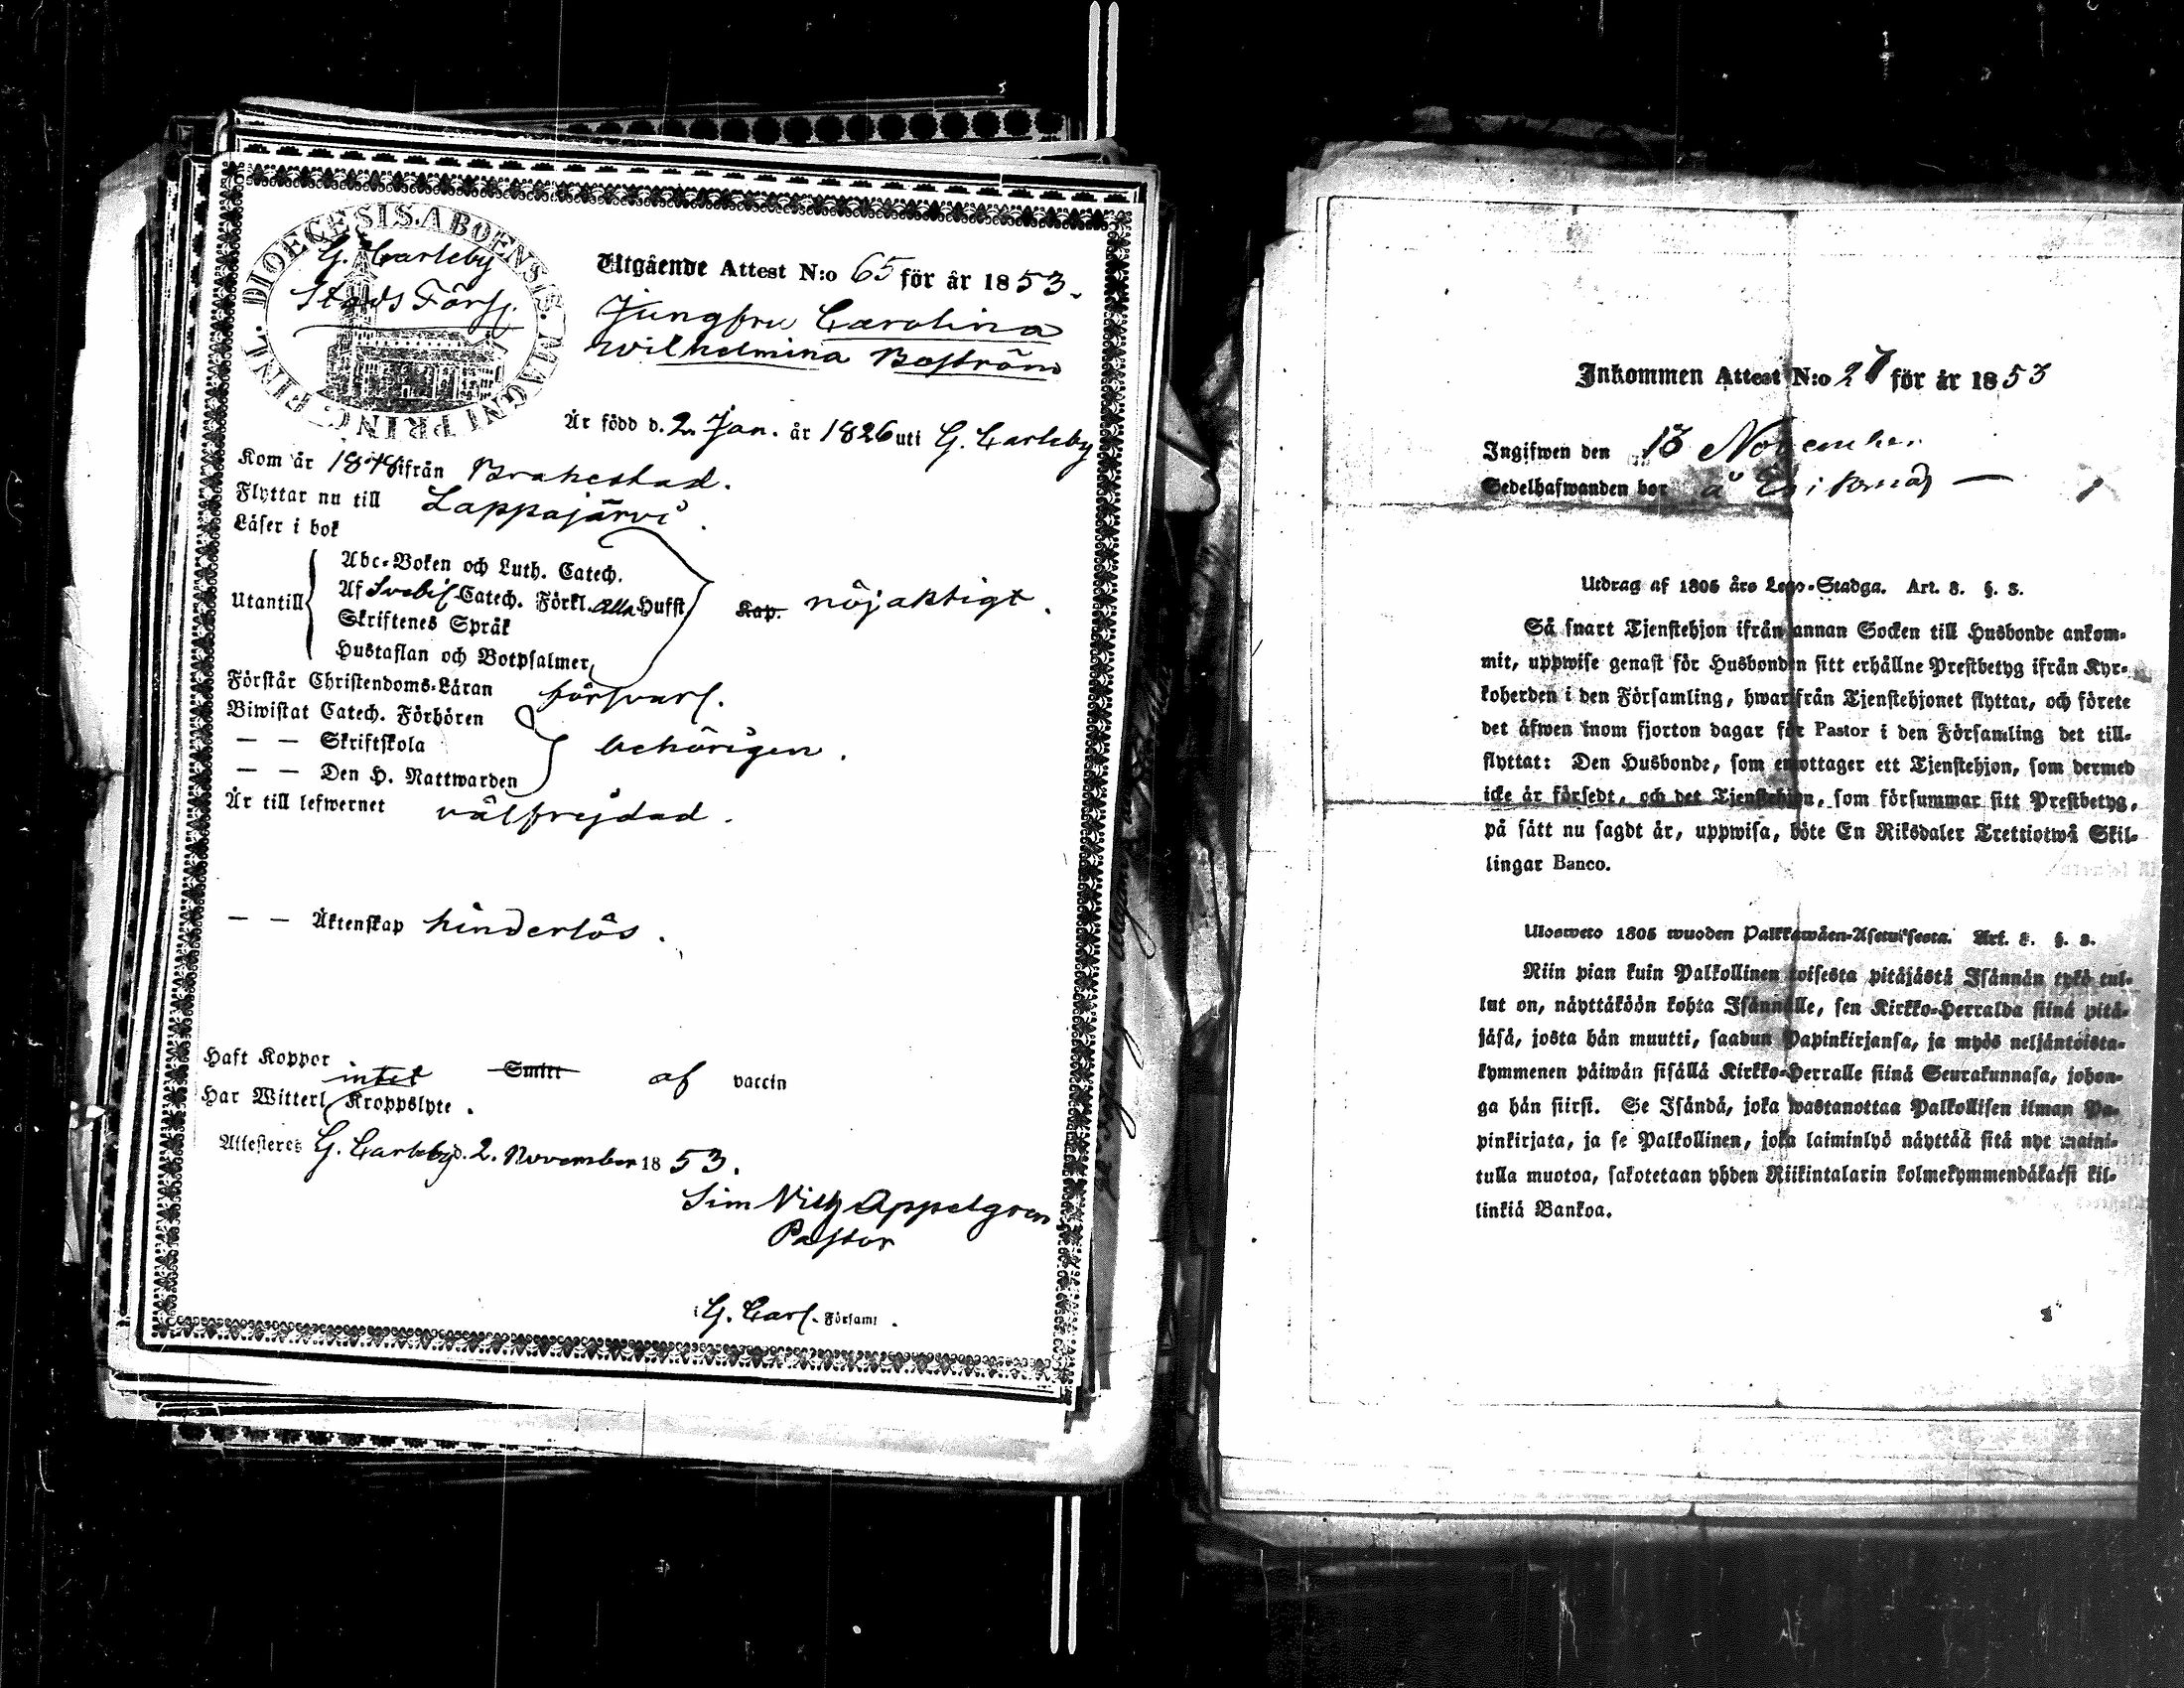 DIOECESIS. ABOENSIS. MAGNI PRINC. FINL.
G. Carleby
Stads Förs.
Utgående Attest N:o 65 för år 1853.
Jungfru Carolina
Wilhelmina Boström
Är född d. 2. Jan. år 1826 uti G. Carleby
Kom år 1848 ifrån Brahestad.
Flyttar nu till Lappajärvi.
Läser i bok
Utantill
Abc-Boken och Luth. Catech.
Af Svebil. Catech. Förkl. alla Hufst.
Skriftenes Språk
Hustaflan och Botpsalmer
Kap. nöjaktigt.
Förstår Christendoms-Läran försvarl.
Biwistat Catech. Förhören
— — Skriftskola
— — Den H. Nattwarden
behörigen.
Är till lefwernet välfrejdad.
— — Äktenskap hinderlös.
Haft Koppor Smitt af vaccin
Har Witterl. intet Kroppslyte.
Attesteras G. Carleby d. 2. November 1853.
Sim Vilh Appelgren
Pastor
i G. Carl. Församl.
Inkommen Attest N:o för år 1853
Ingifwen den 13 November
Sedelhafwanden bor å
Utdrag af 1805 års Lego-Stadga. Art. 8. §. 3.
Så snart Tjenstehjon ifrån annan Socken till Husbonde ankom-
mit, uppwise genast för Husbonden sitt erhållne Prestbetyg ifrån Kyr-
koherden i den Församling, hwarifrån Tjenstehjonet flyttat, och förete
det äfwen inom fjorton dagar för Pastor i den Församling det till-
flyttat: Den Husbonde, som emottager ett Tjenstehjon, som dermed
icke är försedt, och det Tjenstehjon, som försummar sitt Prestbetyg,
på sätt nu sagdt är, uppwisa, böte En Riksdaler Trettiotwå Skil-
lingar Banco.
Ulosweto 1805 wuoden Palkkawäen-Asetuksesta. Art. 8. §. 3.
Niin pian kuin Palkollinen toisesta pitäjästä Isännän tykö tul-
lut on, näyttäköön kohta Isännälle, sen Kirkko-Herralda siinä pitä-
jäsä, josta hän muutti, saadun Papinkirjansa, ja myös neljäntoista-
kymmenen päiwän sisällä Kirkko-Herralle siinä Seurakunnasa, johon-
ga hän siirsi. Se Isändä, joka wastanottaa Palkollisen ilman Pa-
pinkirjata, ja se Palkollinen, joka laiminlyö näyttää sitä nyt maini-
tulla muotoa, sakotetaan yhden Riikintalarin kolmekymmendäkaksi kil-
linkiä Bankoa.